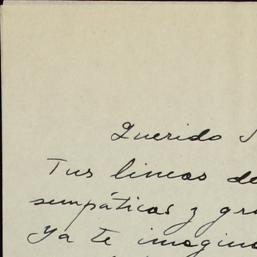 Querido
Tus lineas de
simpáticas y gra
Ya te imagina